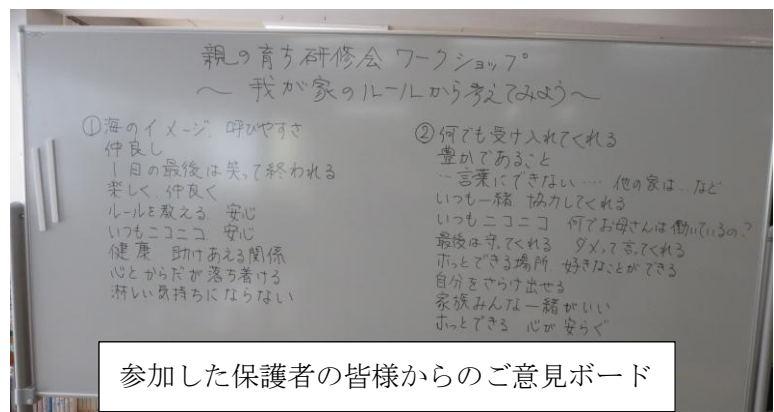 親の育ち研修会 ワークショップ
～ 我が家のルールから考えてみよう～
①海のイメージ 呼びやすさ
仲良し
1日の最後は笑って終われる
楽しく 仲良く
ルールを教える 安心
いつもニコニコ 安心
健康 助けあえる関係
心とからだが落ち着ける
淋しい気持ちにならない
②何でも受け入れてくれる
豊かであること
…言葉にできない… 他の家は…など
いつも一緒 協力してくれる
いつもニコニコ 何でお母さんは働いているの?
最後は守ってくれる ダメって言ってくれる
ホッとできる場所 好きなことができる
自分をさらけ出せる
家族みんな一緒がいい
ホッとできる 心が安らぐ
参加した保護者の皆様からのご意見ボード